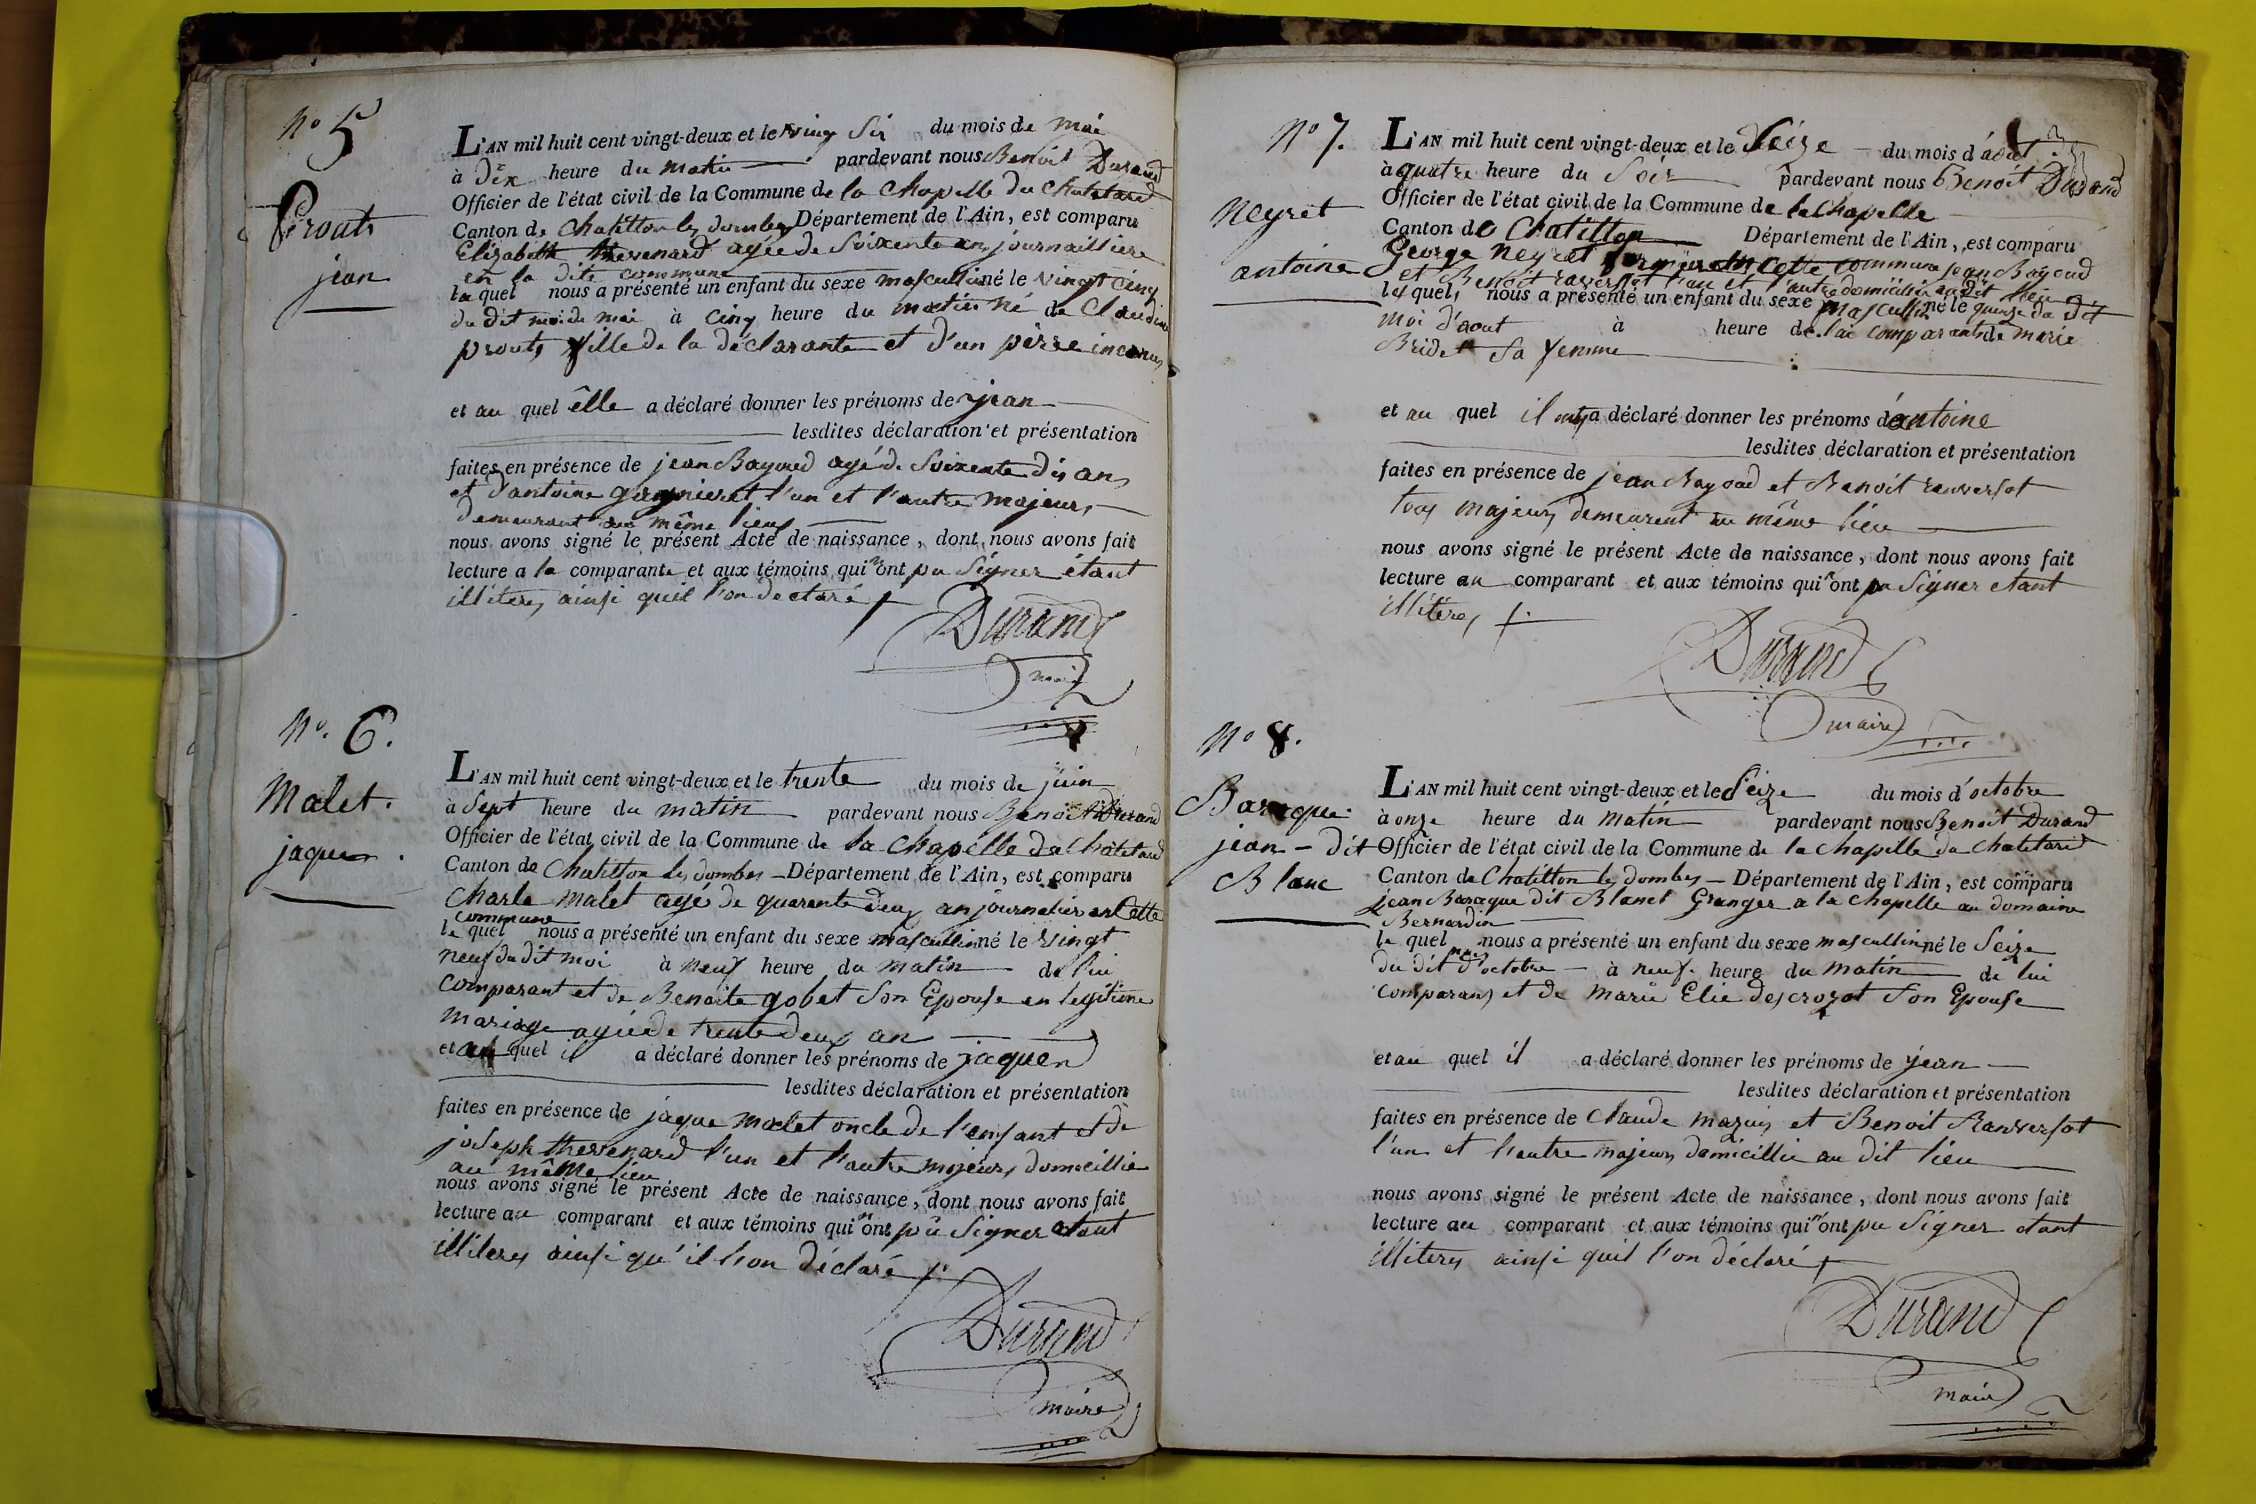 No 5
Prouts
jean
L'AN mil huit cent vingt-deux et le ving Six du mois de mai
à dix heure du matin pardevant nous Benoit Durand
Officier de l'état civil de la Commune de la Chapelle du Chatelard
Canton de Chatillon les dombes Département de l'Ain, est comparu
Elizabeth thevenard agée de Soixente ans journaillière
en la dite commune
la quel nous a présenté un enfant du sexe mascullin né le vingt cinq
du dit moi de mai à cinq heure du matin né de Claudine
prouts fille de la déclarante et d'un père inconus
et au quel êlle a déclaré donner les prénoms de jean
lesdites déclaration et présentation
faites en présence de jean Bayoud agé de Soixente dis ans
et d'antoine l'un et l'autre majeurs
demeurant au même lieux
nous avons signé le présent Acte de naissance, dont nous avons fait
lecture a la comparante et aux témoins qui n'ont pu Signer étant
illiteres ainsi quil l'on declaré
Durand
maire
No. 6.
Malet.
jaques.
L'AN mil huit cent vingt-deux et le trente du mois de juin
à Sept heure du matin pardevant nous Benoit Durand
Officier de l'état civil de la Commune de la Chapelle du Chatelard
Canton de Chatillon les dombes Département de l'Ain, est comparu
Charle malet agé de quarente deux an journalier en Cette
commune
le quel nous a présenté un enfant du sexe mascullin né le vingt
neuf du dit moi à neuf heure du matin de lui
comparant et de Benoite gobet Son Epouse en legitime
mariage agée de trente deux an
et au quel il a déclaré donner les prénoms de jaques
lesdites déclaration et présentation
faites en présence de jaque malet oncle de l'enfant et de
joseph thevenard l'un et l'autre majeurs domicillié
au même lieu
nous avons signé le présent Acte de naissance, dont nous avons fait
lecture au comparant et aux témoins qui n'ont pû Signer etant
illiteres ainsi qu'il l'on déclaré
Durand
maire
No 7.
Neyret
antoine
L'AN mil huit cent vingt-deux et le Seize du mois d'aout
à quatre heure du Soir pardevant nous Benoit Durand
Officier de l'état civil de la Commune de la Chapelle
Canton de Chatillon Département de l'Ain, est comparu
George Neyret fermier en cette commune jean Bayoud
et Benoit ranversot l'un et l'autre domicillié au dit lieu
les quels nous a présenté un enfant du sexe mascullin né le quinze du dit
moi d'aout à heure de lui comparant de marie
Bridet Sa femme
et au quel il ont a déclaré donner les prénoms d'antoine
lesdites déclaration et présentation
faites en présence de jean Bayoud et Benoit ranversot
tous majeurs demeurent au même lieu
nous avons signé le présent Acte de naissance, dont nous avons fait
lecture au comparant et aux témoins qui n'ont pu Signer etant
illitéres
Durand
maire
No 8.
Baraque
jean - dit
Blanc
L'AN mil huit cent vingt-deux et le Seize du mois d'octobre
à onze heure du matin pardevant nous Benoit Durand
Officier de l'état civil de la Commune de la Chapelle du Chatelard
Canton de Chatillon les dombes Département de l'Ain, est comparu
jean Baraque dit Blanct Granger a la Chapelle au domaine
Bernardin
le quel nous a présenté un enfant du sexe mascullin né le Seize
du dit moi d'octobre à neuf heure du matin de lui
comparans et de marie Elie descrozot Son Epouse
et au quel il a déclaré donner les prénoms de jean
lesdites déclaration et présentation
faites en présence de Claude mazuis et Benoit Ranversot
l'un et l'autre majeurs domicillié au dit lieu
nous avons signé le présent Acte de naissance, dont nous avons fait
lecture au comparant et aux témoins qui n'ont pu Signer etant
illiteres ainsi quil l'on déclaré
Durand
maire